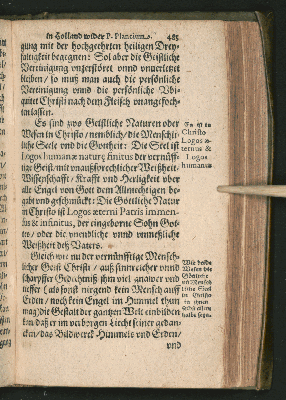 in Holland wider P. Plancium. 485
gung mit der hochgelehrten heiligen Drey-
faltigkeit begegnen: Sol aber die Geistliche
Vereinigung unzerstöret vnnd unuerletzet
bleiben / so muß man auch die persönliche
Vereinigung vnnd die persönliche Vbi-
quitet Christi nach dem Fleisch vnangefoch-
ten lassen.
Es sind zwo Geistliche Naturen oder
Wesen in Christo / nemblich / die Menschli-
che Seele vnd die Gottheit: Die Seel ist
Logos humanæ naturæ finitus der vernünff-
tige Geist / mit vnaußsprechlicher Weißheit /
Wissenschafft / Krafft vnd Heiligkeit vber
alle Engel von Gott dem Allmechtigen be-
gabt vnd geschmückt: Die Göttliche Natur
in Christo ist Logos æterni Patris immen-
sus & infinitus, der eingeborne Sohn Got-
tes / oder die vnendliche vnnd vnmeßliche
Weißheit deß Vaters.
Gleich wie nu der vernünfftige Mensch-
licher Geist Christi / auß sinnreicher vnnd
scharpffer Gedechtniß jhm viel genawer vnd
tieffer ( als sonst nirgend kein Mensch auff
Erden / noch kein Engel im Himmel thun
mag) die Gestalt der gantzen Welt einbilden
kan / daß er im verborgen Liecht seiner gedan-
cken / das Bildwerck Himmels vnd Erden /
vnd
Es ist in
Christo
Logos æ-
ternus &
Logos
humanus
Wie beide
Wesen die
Göttliche
vn Mensch
liche Seel
in Christo
in jhnen
selbs allent
halbe seyn.